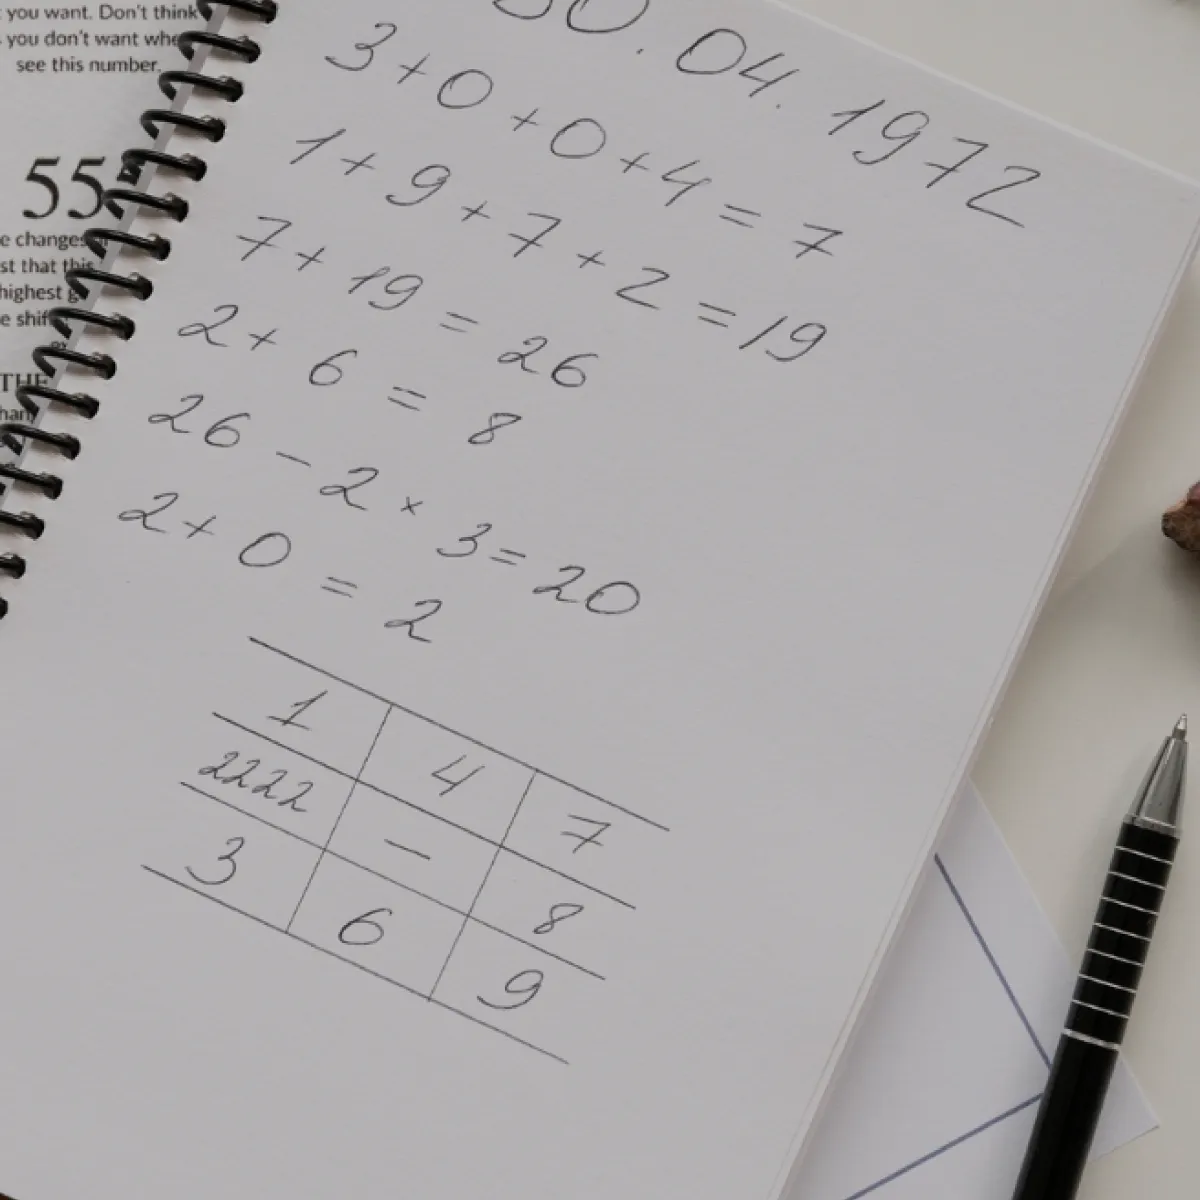 you want. Don't think
you don't want whe
see this number.
55
e changes
st that this
highest g
e shif
THE
han
30.04.1972
3+0+0+4=7
1+9+7+2=19
7+19=26
2+6=8
26-2×3=20
2+0=2
1 4 7
2222 — 8
3 6 9